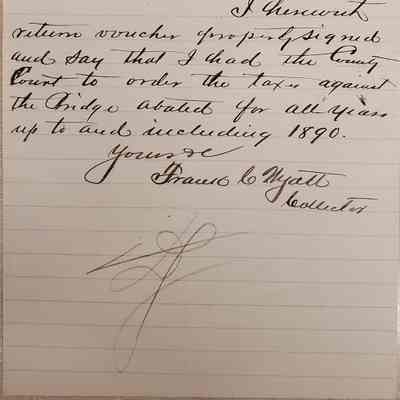 I herewith
return voucher properly signed
and say that I had the County
Court to order the taxes against
the Bridge abated for all years
up to and including 1890.
Yours &c
Frank C Wyatt
Collector